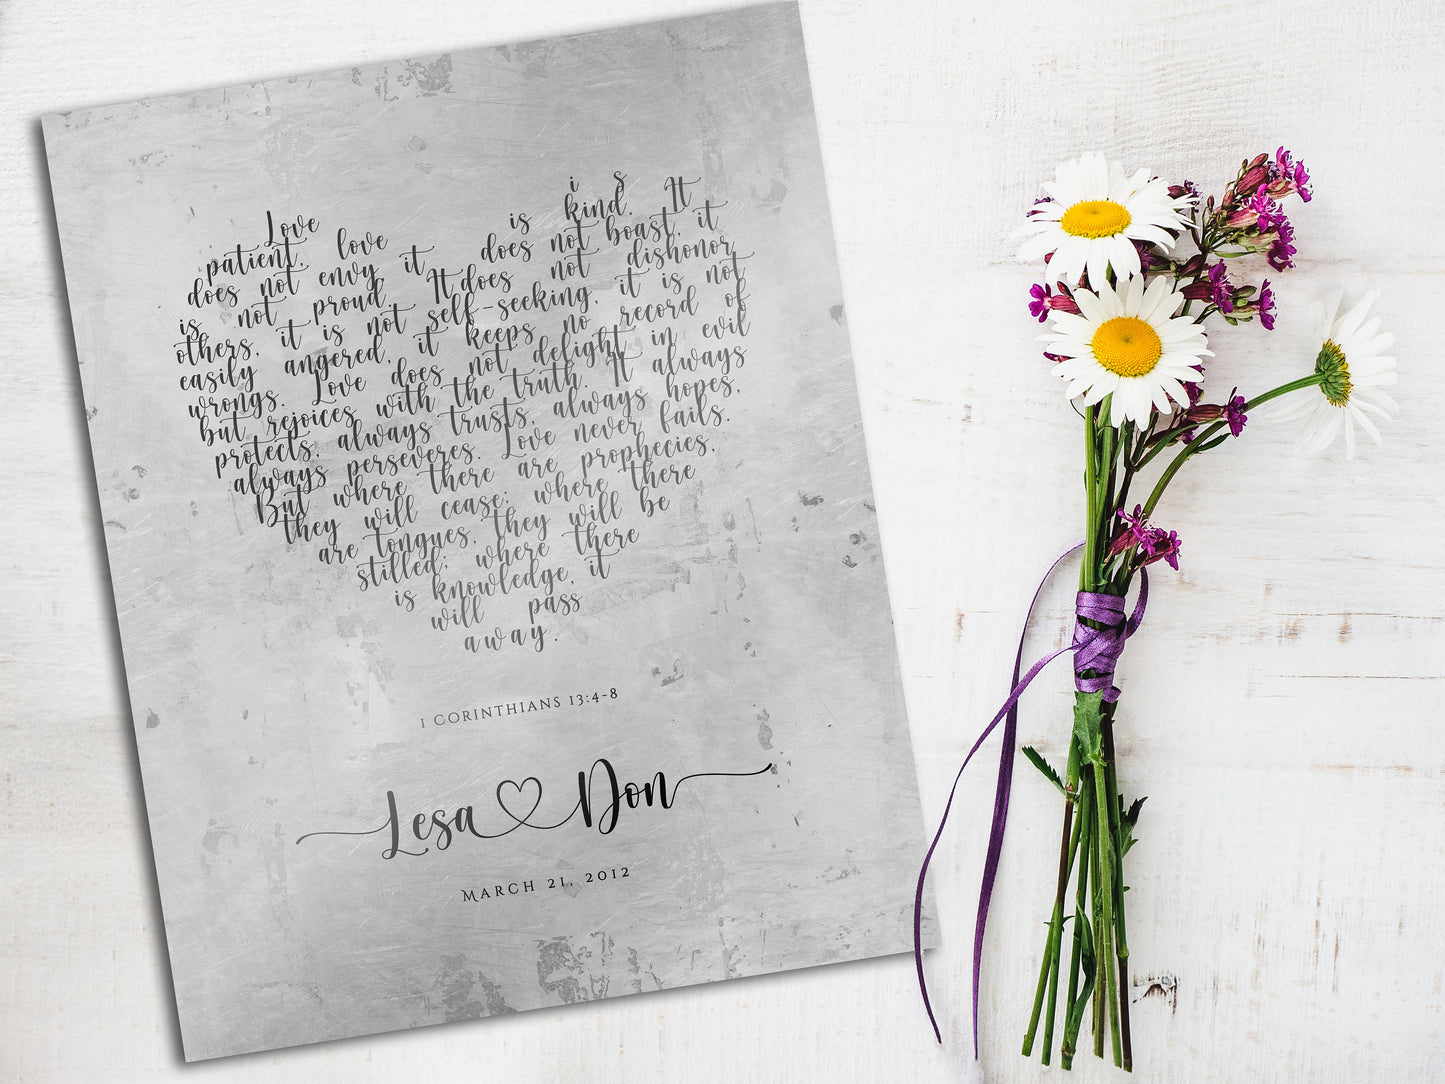 Love is
patient, love is kind. It
does not envy, it does not boast, it
is not proud. It does not dishonor
others, it is not self-seeking, it is not
easily angered, it keeps no record of
wrongs. Love does not delight in evil
but rejoices with the truth. It always
protects, always trusts, always hopes,
always perseveres. Love never fails.
But where there are prophecies,
they will cease; where there
are tongues, they will be
stilled; where there
is knowledge, it
will pass
away.
1 CORINTHIANS 13:4-8
Lesa Don
MARCH 21, 2012